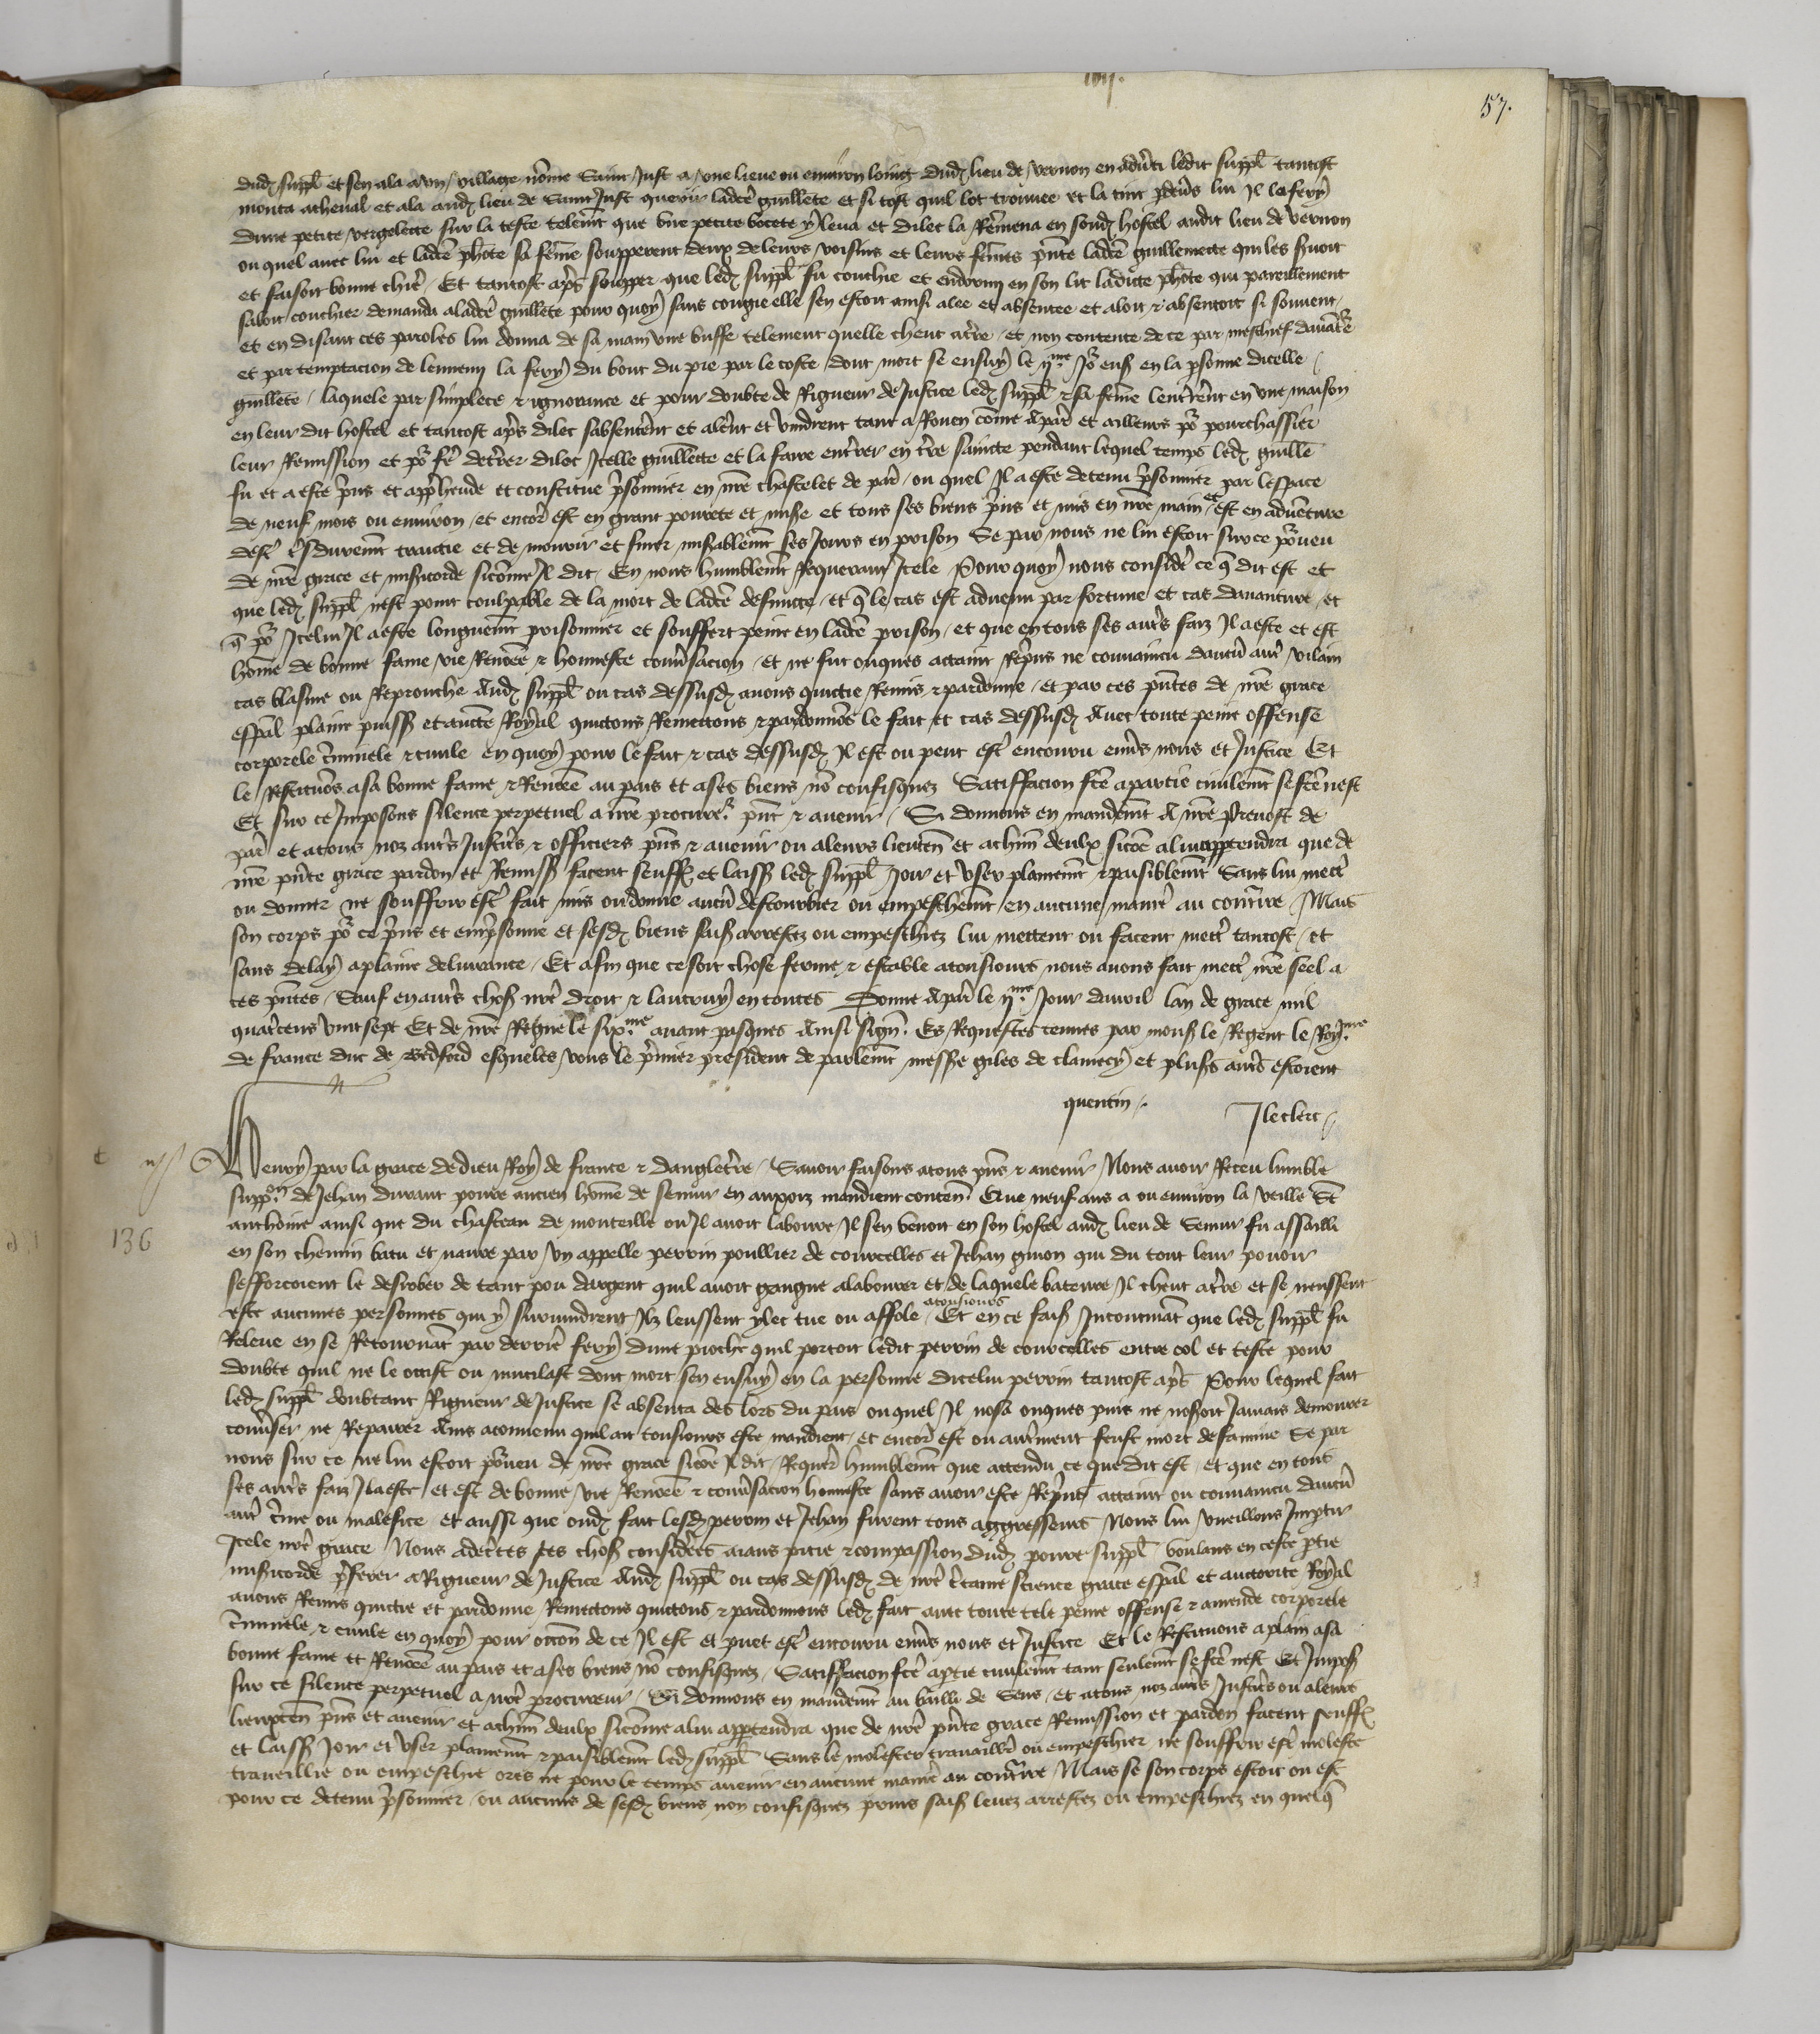 lvij.
57.
dud. suppl. et sen ala a un village nomé Saint Just a une lieue ou environ loing dud. lieu de Vernon en adverti ledit suppl. tantost
monta a cheval et ala aud. lieu de Saint Just querir lad. guillete et si tost quil lot trouvee et la tint devers lui il la fery
dune petite vergelette sur la teste telemt que une petite bocete y leva et dilec la remena en sond. hostel audit lieu de Vernon
ou quel avec lui et lade phote sa feme soupperent deux de leurs voisins et leurs femes pnte lade guillemette qui les servoit
et faisoit bonne chere Et tantost apres soupper que led. suppl. fu couchie et endormi en son lit ladicte phote qui pareillement
saloit couchier demanda a lade guillete pour quoy sans congie elle sen estoit ainsi alee et absentee et aloit & absentoit si souvent
et en disant ces paroles lui donna de sa main une buffe telement quelle cheut a terre et non contente de ce par meschief davanture
et par temptacion de lennemi la fery du bout du pie par le coste dont mort se ensuy le ijme jo ens. en la psonne dicelle
guillete laquele par simplece & ignorance et pour doubte de Rigueur de Justice led. suppl. & sa feme lenterrent en une maison
en leur dit hostel et tantost apres dilec sabsenterent et alerent et vindrent tant a Rouen come a par et ailleurs po pourchassier
leur Remission et po fe deterrer dilec Icelle guillete et la faire enterrer en terre saincte pendant lequel temps led. guille
fu et a este prins et apprehende et constitue prisonnier en nre chastelet de par ou quel Il a este detenu prisonnier par lespace
de neuf mois ou environ et encor est en grant povrete et misere et tous ses biens prins et mis en nre main et est en adventure
dest tres durement traictie et de mourir et finer miserablement ses Jours en prison Se par nous ne lui estoit sur ce pourveu
de nre grace et misericorde sicome Il dit En nous humblemt Requerant Icele Pour quoy nous considere ce que dit est et
que led. suppl. nest point coulpable de la mort de lade defuncte et que le cas est advenu par fortune et cas davanture et
que po Icelui Il a este longuemt prisonnier et souffert peine en lade prison et que en tous ses autres faiz Il a este et est
home de bonne fame vie Renomee & honneste conversacion et ne fut onques attaint Reprins ne convaincu daucun autre vilain
cas blasme ou Reprouche Aud. suppl. ou cas dessusd. avons quictie Remis & pardonne et par ces pntes de nre grace
espal plaine puiss. et aucte Royal quictons Remettons & pardonnos le fait et cas dessusd. Avec toute peine offense
corporele criminele & civile en quoy pour le fait & cas dessusd. Il est ou peut est encouru envers nous et Justice Et
le restituos a sa bonne fame & Renomee au pais et a ses biens no confisquez Satisfacion fce a partie civilemt se fce nest
Et sur ce Imposons silence perpetuel a nre procureur pnt & avenir Si donnons en mandemt A nre Prevost de
par et a tous noz autres Justiciers & officiers pns & avenir ou a leurs lieuten et a chun deulx sicoe a lui appartendra que de
nre pnte grace pardon et Remiss. facent seuff. et laiss. led. suppl. Joir et user plainemt & paisiblemt Sans lui mectre
ou donner ne souffrir est fait mis ou donne aucun destourbier ou empeschemt en aucune maniere au contraire Mais
son corps po ce prins et emprisonne et sesd. biens sais. arrestez ou empeschiez lui mettent ou facent mectre tantost et
sans delay a plaine delivrance Et afin que ce soit chose ferme & estable a tousiours nous avons fait mectre nre seel a
ces pntes Sauf en autres choses nre droit & lautruy en toutes Donne A par le ijme Jour davril lan de grace mil
quatrecens vint sept Et de nre Regne le sixme avant pasques Ainsi sign. Es Requestes tenues par mons. le Regent le Royme
de france duc de Bedford esqueles vous le premier president de parlemt messe giles de clamecy et pluss autres estoient
quentin J leclerc
Henry par la grace de dieu Roy de france & dangleterre Savoir faisons a tous pns & avenir Nous avoir Receu lumble
supp.on de Jehan durant povre ancien home de semur en auxois mandient conten. Que neuf ans a ou environ la veille St
anthoine ainsi que du chasteau de monteille ou Il avoit laboure Il sen venoit en son hostel aud. lieu de Semur fu assailli
136
en son chemin batu et navre par un appelle perrin poullier de courcelles et Jehan guion qui du tout leur povoir
sefforcoient le desrober de tant pou dargent quil avoit gaigne a labourer et de laquele bateure Il cheut a terre et se neussent
este aucunes personnes qui y survindrent Ilz leussent ylec tue ou affole atousiours Et en ce fais. Incontinat que led. suppl. fu
Releve en se Retournat par derriere fery dune pioche quil portoit ledit perrin de courcelles entre col et teste pour
doubte quil ne le occist ou mutilast dont mort sen ensuy en la personne dicelui perrin tantost apres Pour lequel fait
led. suppl. doubtant Rigueur de Justice se absenta des lors du pais ouquel Il nosa onques puis ne noseroit Jamais demourer
converser ne Repairer Ains a convenu quil ait tousiours este mandient et encor est ou autrement feust mort de famine Se par
nous sur ce ne lui estoit pourveu de nre grace sicoe Il dit Requer humblemt que attendu ce que dit est et que en tous
ses autres faiz Il a este et est de bonne vie Renomee & conversacion honneste sans avoir este Reprins attaint ou convaincu daucun
autre crime ou malefice et aussi que oud. fait lesd. perrin et Jehan furent tous aggresseurs Nous lui vueillons Impartir
Icele nre grace Nous adecertes ces choses considerees aians pitie & compassion dud. povre suppl. voulans en ceste partie
misericorde preferer a Rigueur de Justice Aud. suppl. ou cas dessusd. de nre certaine science grace espal et auctorite Royal
avons Remis quictie et pardonne Remettons quictons & pardonnons led. fait avec toute tele peine offense & amende corporele
criminele & civile en quoy pour occon de ce Il est et puet est encouru envers nous et Justice Et le Restituons a plain a sa
bonne fame et Renomee au pais et a ses biens no confisquez Satisfacion fce a partie civilemt tant seulemt se fce nest Et Impos.
sur ce silence perpetuel a nre procureur Si donnons en mandemt au bailli de Sens et a tous noz autres Justiciers ou a leurs
lieuxten pns et avenir et a chun deulx sicome a lui appartendra que de nre pnte grace Remission et pardon facent seuff.
et laiss. Joir et user plainemt & paisiblemt led. suppl. Sans le molester travaillier ou empeschier ne souffrir est moleste
traveillie ou empeschie ores ne pour le temps avenir en aucune maniere au contraire Mais se son corps estoit ou est
pour ce detenu prisonnier ou aucuns de sesd. biens non confisquez prins sais. levez arrestez ou empeschiez en quelque